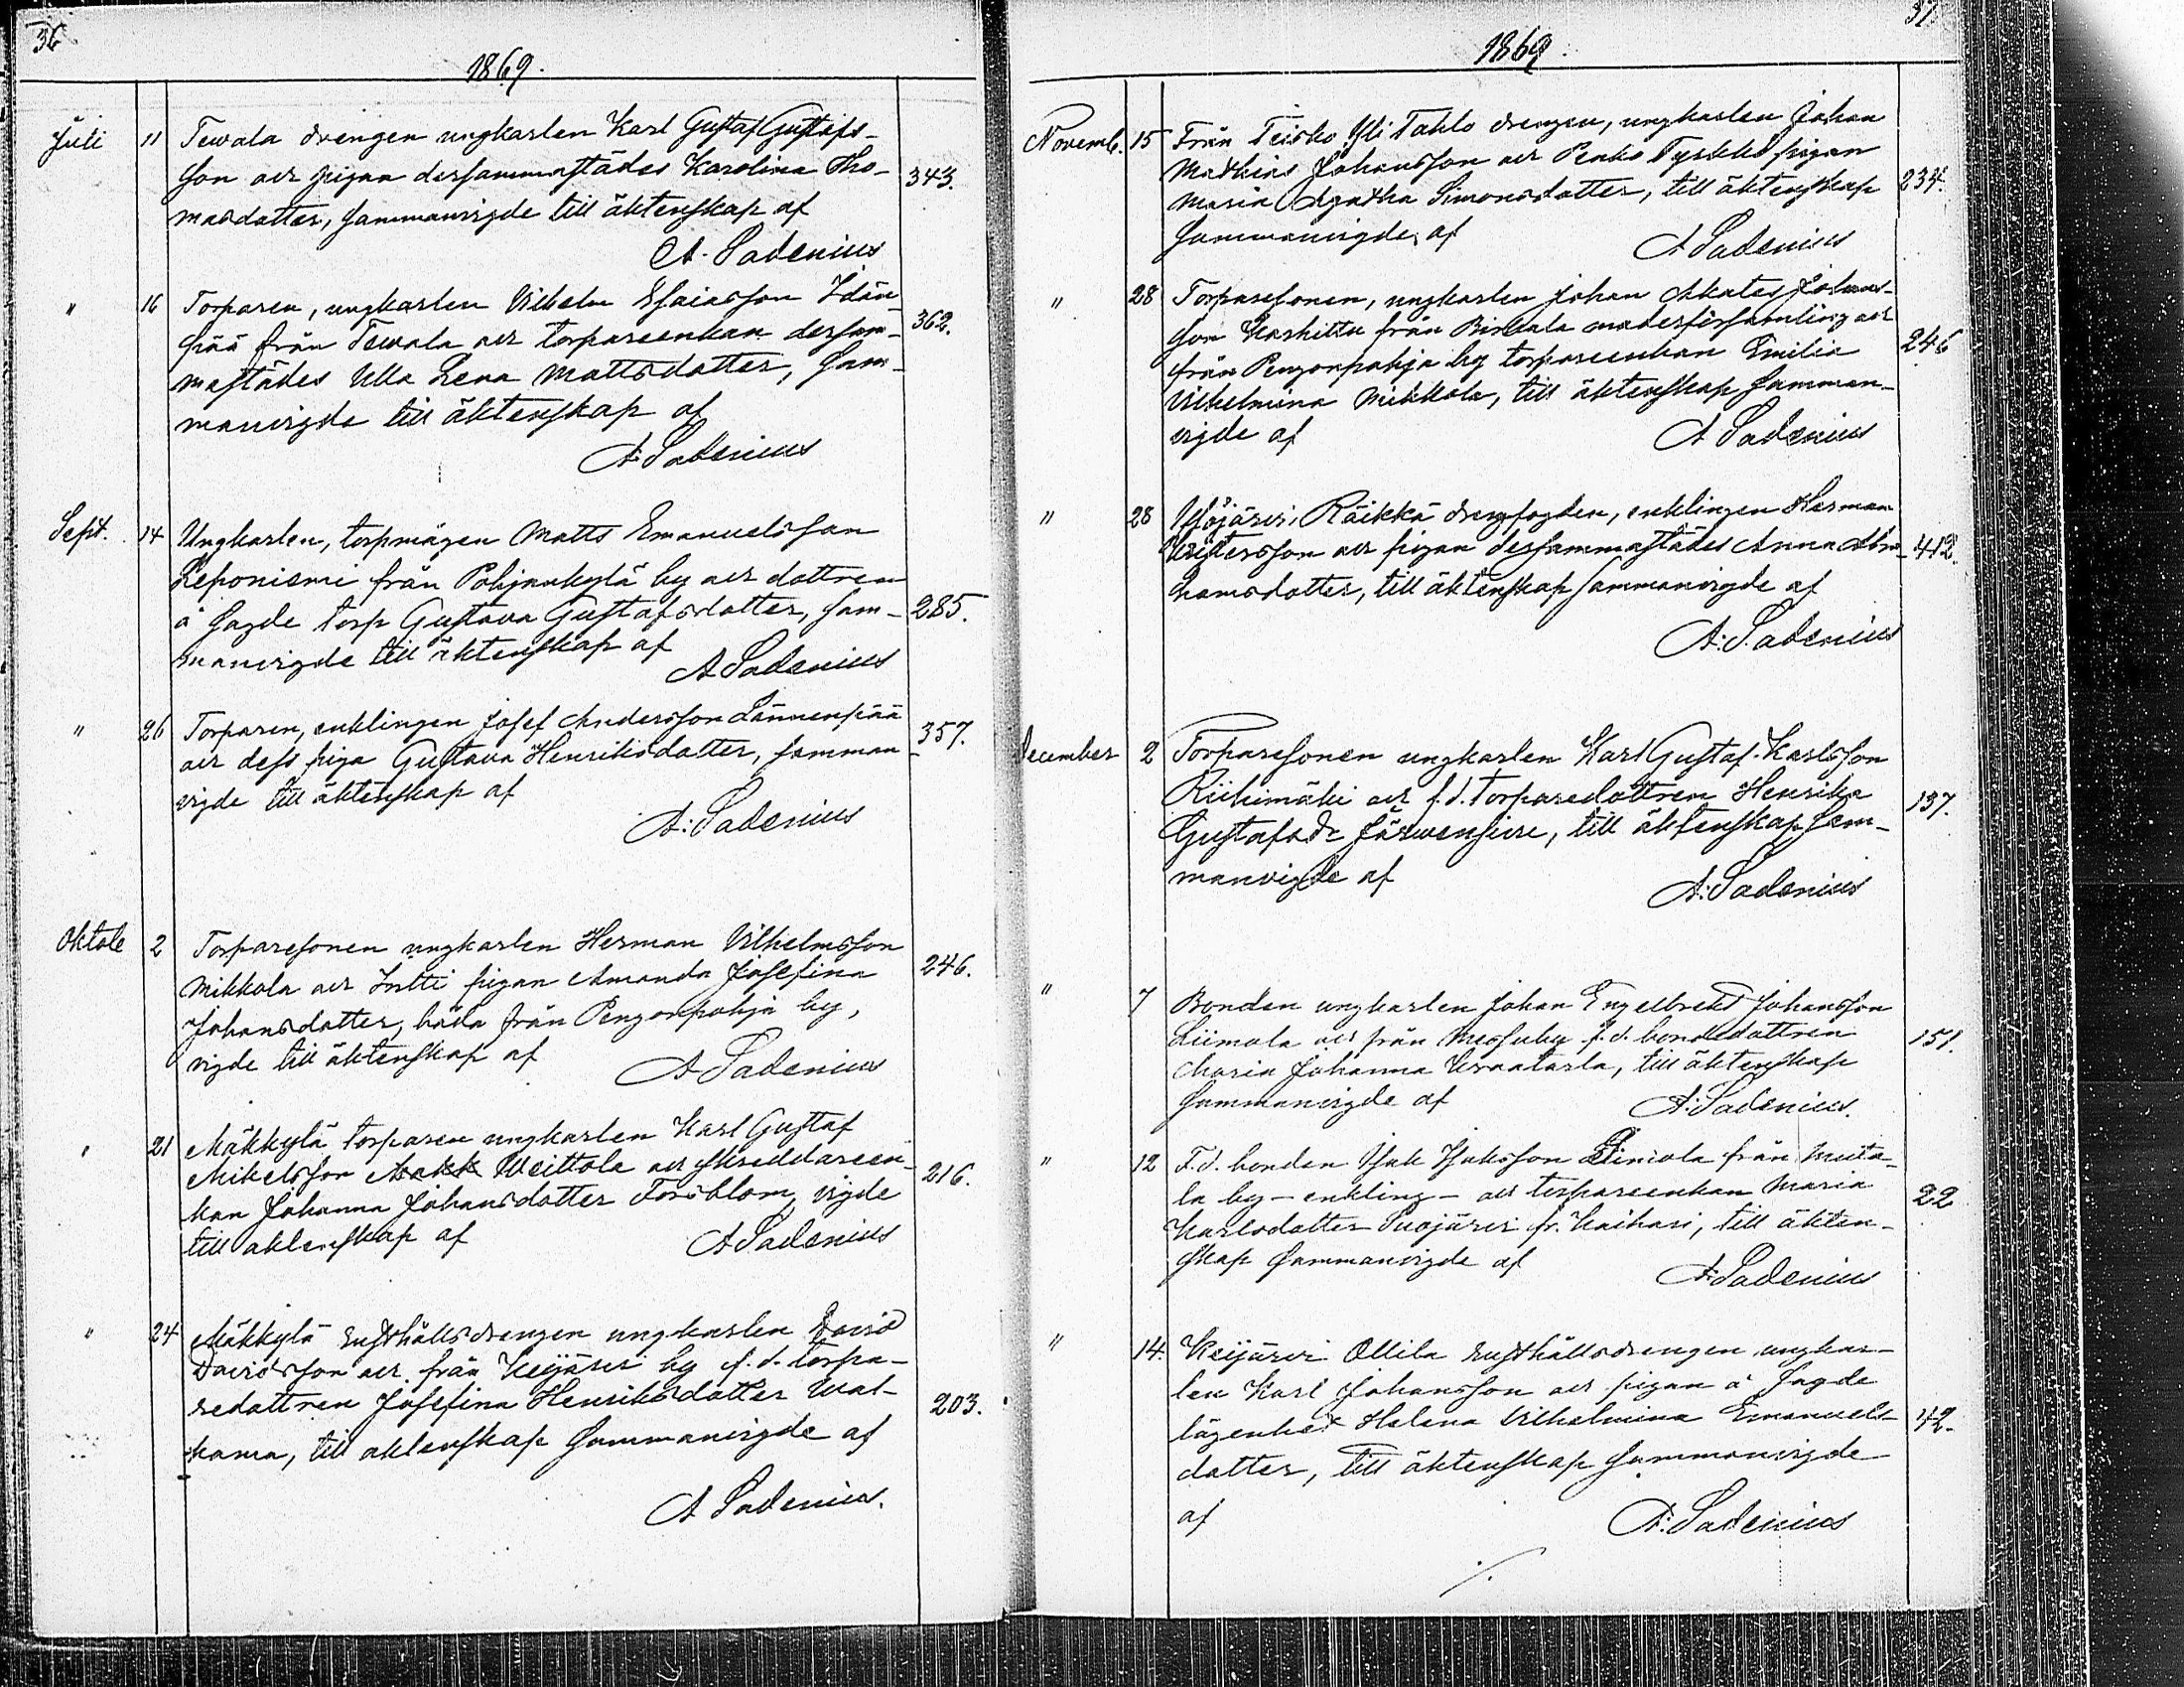 36
1869.
Juli 11 Tewala drengen ungkarlen Karl Gustaf Gustafs-
son och pigan dersammastädes Karolina Tho- 343.
masdotter, sammanvigde till äktenskap af
A. Sadenius
" 16 Torparen, ungkarlen Vilhelm Esaiasson Idän-
pää från Tewala och torpareenkan dersam- 362.
mastädes Ulla Lena Mattsdotter, sam-
manvigde till äktenskap af
A. Sadenius
Sept. 14 Ungkarlen, torpmågen Matts Emanuelsson
Leponiemi från Pohjankylä by och dottren
å sagde torp Gustava Gustafsdotter, sam- 285.
manvigde till äktenskap af
A Sadenius
" 26 Torparen, enklingen Josef Andersson Lännenpää
och dess piga Gustava Henriksdotter, samman 357.
vigde till äktenskap af
A. Sadenius
Oktob 2 Torparesonen ungkarlen Herman Vilhelmsson
Mikkola och pigan Amanda Josefina 246.
Johansdotter, båda från Pengonpohja by,
vigde till äktenskap af
A Sadenius
" 21 Mäkkylä torparen ungkarlen Karl Gustaf
Mikelsson Weittola och skreddareen- 216.
kan Johanna Johansdotter Forsblom, vigde
till aktenskap af
A Sadenius
" 24 Mäkkylä rusthållsdrengen ungkarlen David
Davidsson och från Keijärvi by f.d. torpa-
redottren Josefina Henriksdotter Wal- 203.
kama, till aktenskap sammanvigde af
A Sadenius.
37
1869.
Novemb. 15 Från Teisko Yli Tahlo drengen, ungkarlen Johan
Mathias Johansson och Penko Tyrkkö pigan
Maria Agatha Simonsdotter, till äktenskap 234.
sammanvigde af
A Sadenius
" 28 Torparesonen, ungkarlen Johan Akates Johans-
son Harhittu från Birkala moderförsamling och
från Pengonpohja by torpareenkan Emilia 246
Vilhelmina Mikkola, till äktenskap samman-
vigde af
A Sadenius
" 28 Ylöjärvi, Räikkä drengfogden, enklingen Herman
Kristersson och pigan dersammastädes Anna Abra- 412.
hamsdotter, till äktenskap sammanvigde af
A. Sadenius
December 2 Torparesonen ungkarlen Karl Gustaf Karlsson
Riihimäki och f.d. torparedottren Henrika 137.
Gustafsdr Järwensivu, till äktenskap sam-
manvigde af
A. Sadenius
" 7 Bonden ungkarlen Johan Engelbrekt Johansson
Liimola och från f.d. bondedottren 151.
Maria Johanna Kraatarla, till äktenskap
sammanvigde af
A. Sadenius.
" 12 F.d. bonden Isak Isaksson Liimola från Muta-
la by - enkling - och torpareenkan Maria 22
Karlsdotter Suojärvi fr. Kaihari, till äkten-
skap sammanvigde af
A. Sadenius
" 14. Keijärvi Ollila rusthållsdrengen ungkar-
len Karl Johansson och pigan å sagde
lägenhet Helena Vilhelmina Emanuels- 42.
dotter, till äktenskap sammanvigde
af
A. Sadenius